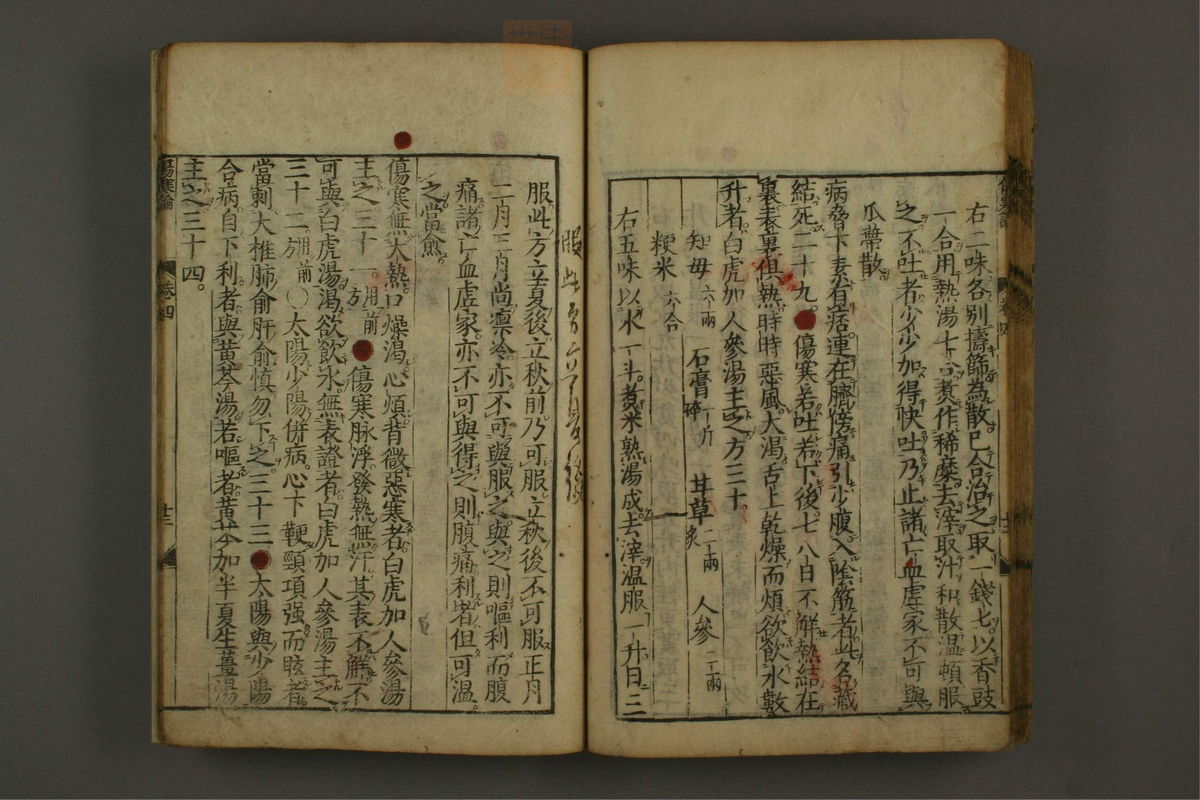 右二味各別擣篩為散已合治之取一錢匕以香豉
一合用熱湯七合煑作稀糜去滓取汁和散溫頓服
之不吐者少少加得快吐乃止諸亡血虛家不可與
瓜蔕散
病脅下素有痞連在臍傍痛引少腹入陰筋者此名藏
結死二十九傷寒若吐若下後七八日不解熱結在
裏表裏俱熱時時惡風大渴舌上乾燥而煩欲飲水數
升者白虎加人參湯主之方三十
知母六兩 石膏一斤碎 甘草二兩炙 人參二兩
粳米六合
右五味以水一斗煑米熟湯成去滓溫服一升日三
服此方立夏後
服此方立夏後立秋前乃可服立秋後不可服正月
二月三月尚凛冷亦不可與服之與之則嘔利而腹
痛諸亡血虛家亦不可與得之則腹痛利者但可溫
之當愈
傷寒無大熱口燥渴心煩背微惡寒者白虎加人參湯
主之三十一用前方傷寒脉浮發熱無汗其表不解不
可與白虎湯渴欲飲水無表證者白虎加人參湯主之
三十二用前方○太陽少陽併病心下鞕頸項强而眩者
當刺大椎肺俞肝俞慎勿下之三十三太陽與少陽
合病自下利者與黃芩湯若嘔者黃芩加半夏生薑湯
主之三十四
傷寒論 卷四 十三